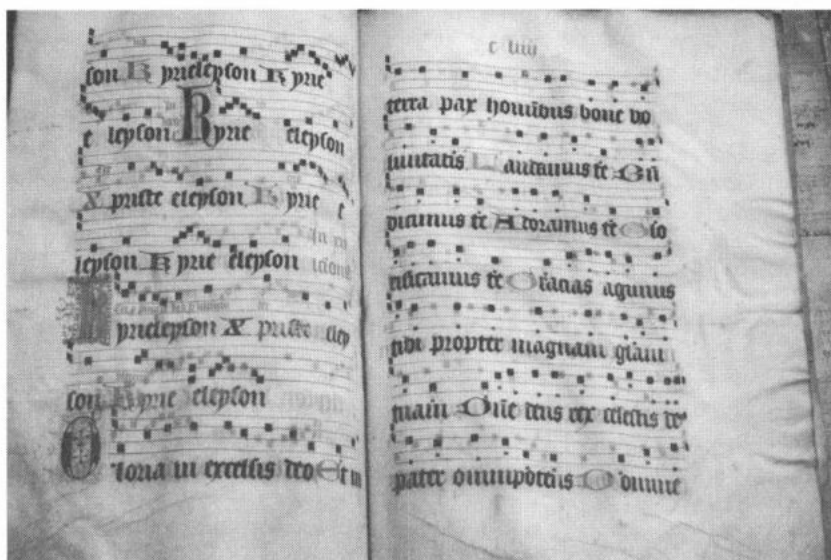 son Kyrieleyson Kyrie
e leyson Kyrie eleyson
Xpriste eleyson Kyrie e
leyson Kyrie eleyson
Kyrieleyson Xpriste eley
son Kyrie eleyson
Gloria in excelsis deo Et in
c iiii
terra pax hominibus bone vo
luntatis Laudamus te Bn
dicimus te Adoramus te Glo
rificamus te Gracias agimus
tibi propter magnam glam
tuam Dne deus rex celestis de
pater omnipotens Domine